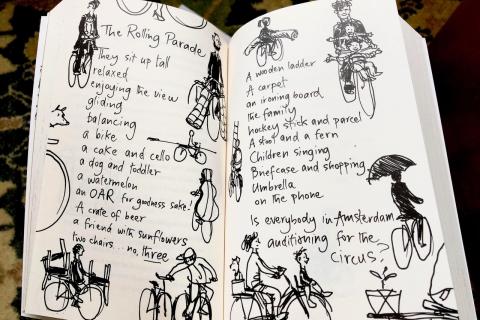 The Rolling Parade
They sit up tall
relaxed
enjoying the view
gliding
balancing
a bike
a cake and cello
a dog and toddler
a watermelon
an OAR for goodness sake!
A crate of beer
a friend with sunflowers
two chairs... no, three
A wooden ladder
A carpet
an ironing board
the family
hockey stick and parcel
A stool and a fern
Children singing
Briefcase and shopping
Umbrella
on the phone
Is everybody in Amsterdam
auditioning for the
Circus?